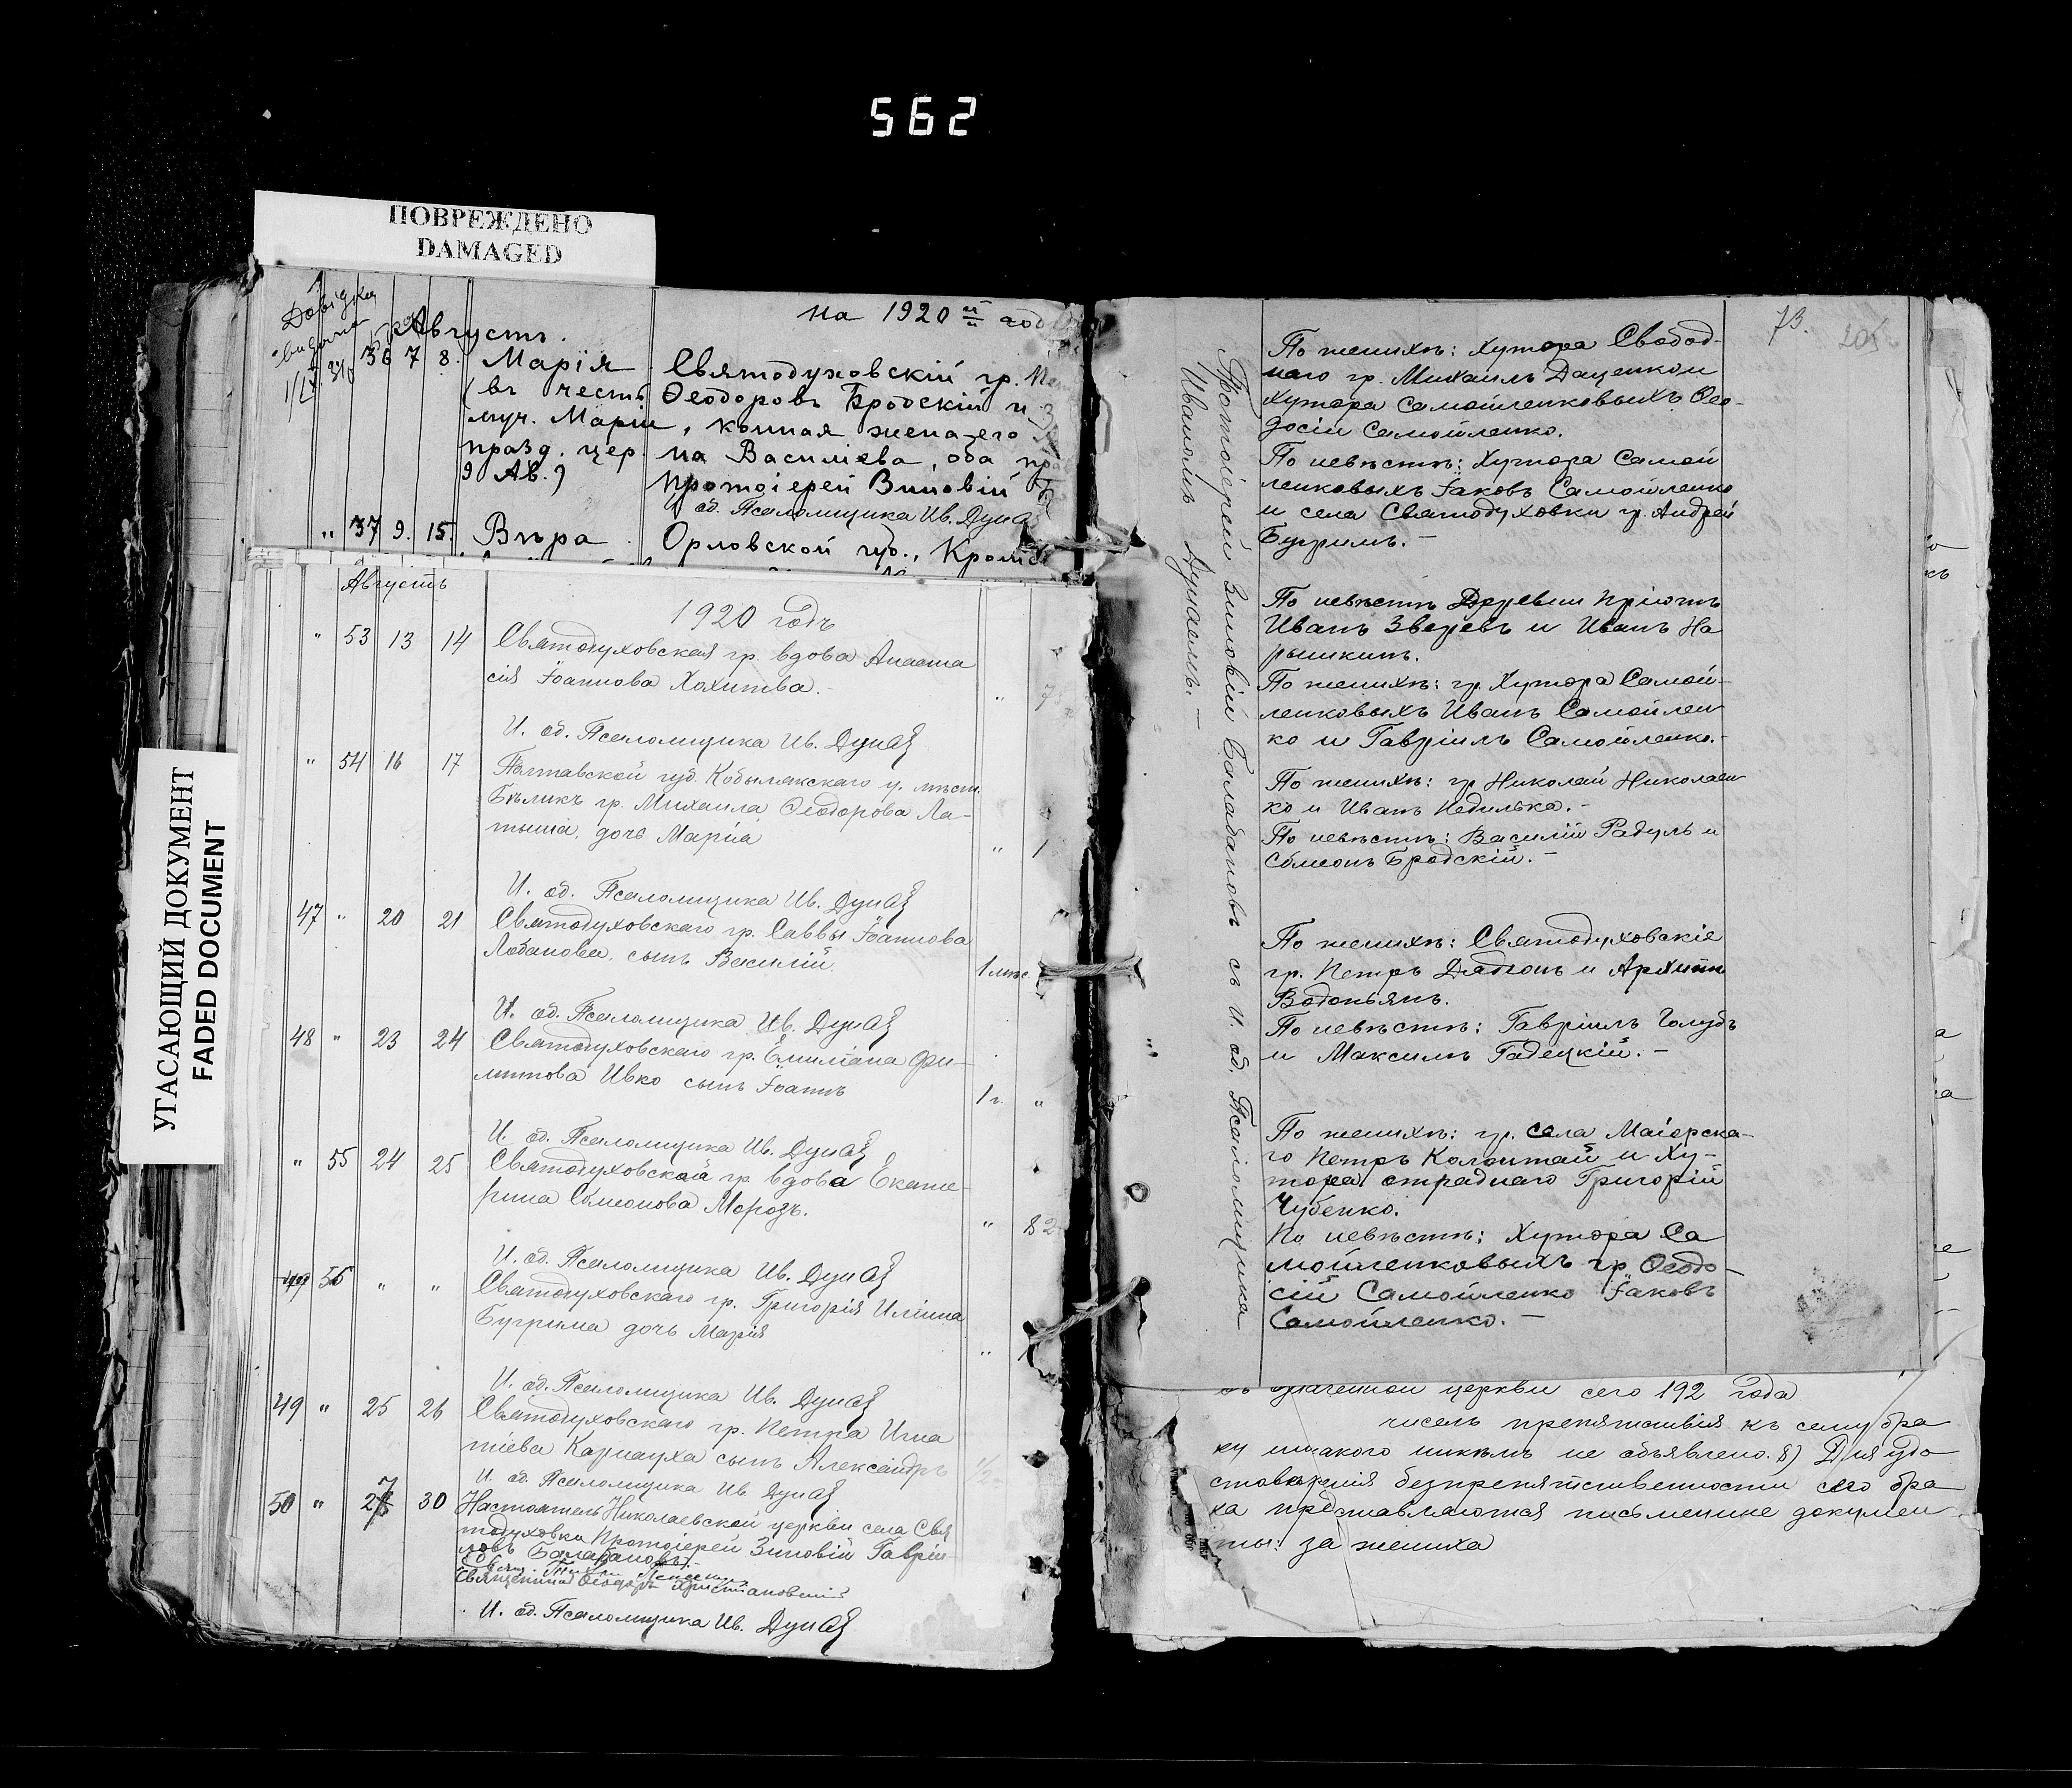 562
ПОВРЕЖДЕНО
DAMAGED
УГАСАЮЩИЙ ДОКУМЕНТ
FADED DOCUMENT
Довідка
видана
на 1920 й год
Августъ.
36 7 8. Марія Святодуховскій гр.
(въ честь Ѳеодоровъ Бродскій и
муч. Маріи, конная жена его
празд. цер. на Василіева, оба
9 Ав.) Протоіерей Зиновій
И. об. Псаломщика Ив. Дунай
" 37 9. 15. Вѣра Орловской губ., Кромск
Августъ
1920 годъ
" 53 13 14 Святодуховская гр. вдова Анаста
сія Іоаннова Хохитва.
И. об. Псаломщика Ив. Дунай
" 54 16 17 Полтавской губ. Кобылякскаго у. мѣст.
Бѣликъ гр. Михаила Ѳеодорова Ла-
тыша, дочь Марія " 1
И. об. Псаломщика Ив. Дунай
47 " 20 21 Святодуховскаго гр. Саввы Іоаннова
Лобанова, сынъ Василій 1 мѣс.
И. об. Псаломщика Ив. Дунай
48 " 23 24 Святодуховскаго гр. Емиліана Фи-
липпова Ивко сынъ Іоаннъ 1 г. "
И. об. Псаломщика Ив. Дунай
" 55 24 25 Святодуховская гр. вдова Екате-
рина Сѵмеонова Морозъ. " 82
И. об. Псаломщика Ив. Дунай
56 " " Святодуховскаго гр. Григорія Иліина
Бугрима дочь Марія "
И. об. Псаломщика Ив. Дунай
49 " 25 26 Святодуховскаго гр. Петра Игна
тіева Карнауха сынъ Александръ 1/2
И. об. Псаломщика Ив. Дунай
50 " 27 30 Настоятель Николаевской церкви села Свя
тодуховки Протоіерей Зиновій Гаврій-
ловъ Балабановъ.
Священникъ Ѳеодоръ Христіановскій
И. об. Псаломщика Ив. Дунай
73.
205
Протоіерей Зиновій Балабановъ съ И. об. Псаломщика
Иваномъ Дунаемъ.-
По женихѣ: Хутора Свобод-
наго гр. Михаилъ Даценко и
Хутора Самойленковыхъ Ѳео-
досій Самойленко.
По невѣстѣ: Хутора Самой
ленковыхъ Іаковъ Самойленко
и села Святодуховки гр. Андрей
Бугримъ.-
По невѣстѣ Деревни Пріютъ
Иванъ Зверевъ и Иванъ На
рышкинъ.
По женихѣ: гр. Хутора Самой-
ленковыхъ Иванъ Самойлен
ко и Гавріилъ Самойленко.-
По женихѣ: гр Николай Николаен
ко и Иванъ Недилька.-
По невѣстѣ: Василій Радуль и
Сѵмеонъ Бродскій.-
По женихѣ: Святодуховскіе
гр. Петръ Дябгонъ и Архипъ
Водопьянъ.
По невѣстѣ: Гавріилъ Голубъ
и Максимъ Гадецкій.-
По женихѣ: гр. села Маіорска-
го Петръ Колонтай и Ху-
тора отраднаго Григорій
Чубенко.
По невѣстѣ: Хутора Са
мойленковыхъ гр Ѳеодо-
сій Самойленко Іаковъ
Самойленко.-
значенной церкви сего 192 года
чиселъ препятствія къ сему бра
ку никакого никѣмъ не объявлено. 8) Для удо
стовѣренія безпрепятственности сего бра
ка представляются письменные докумен
ты: за жениха